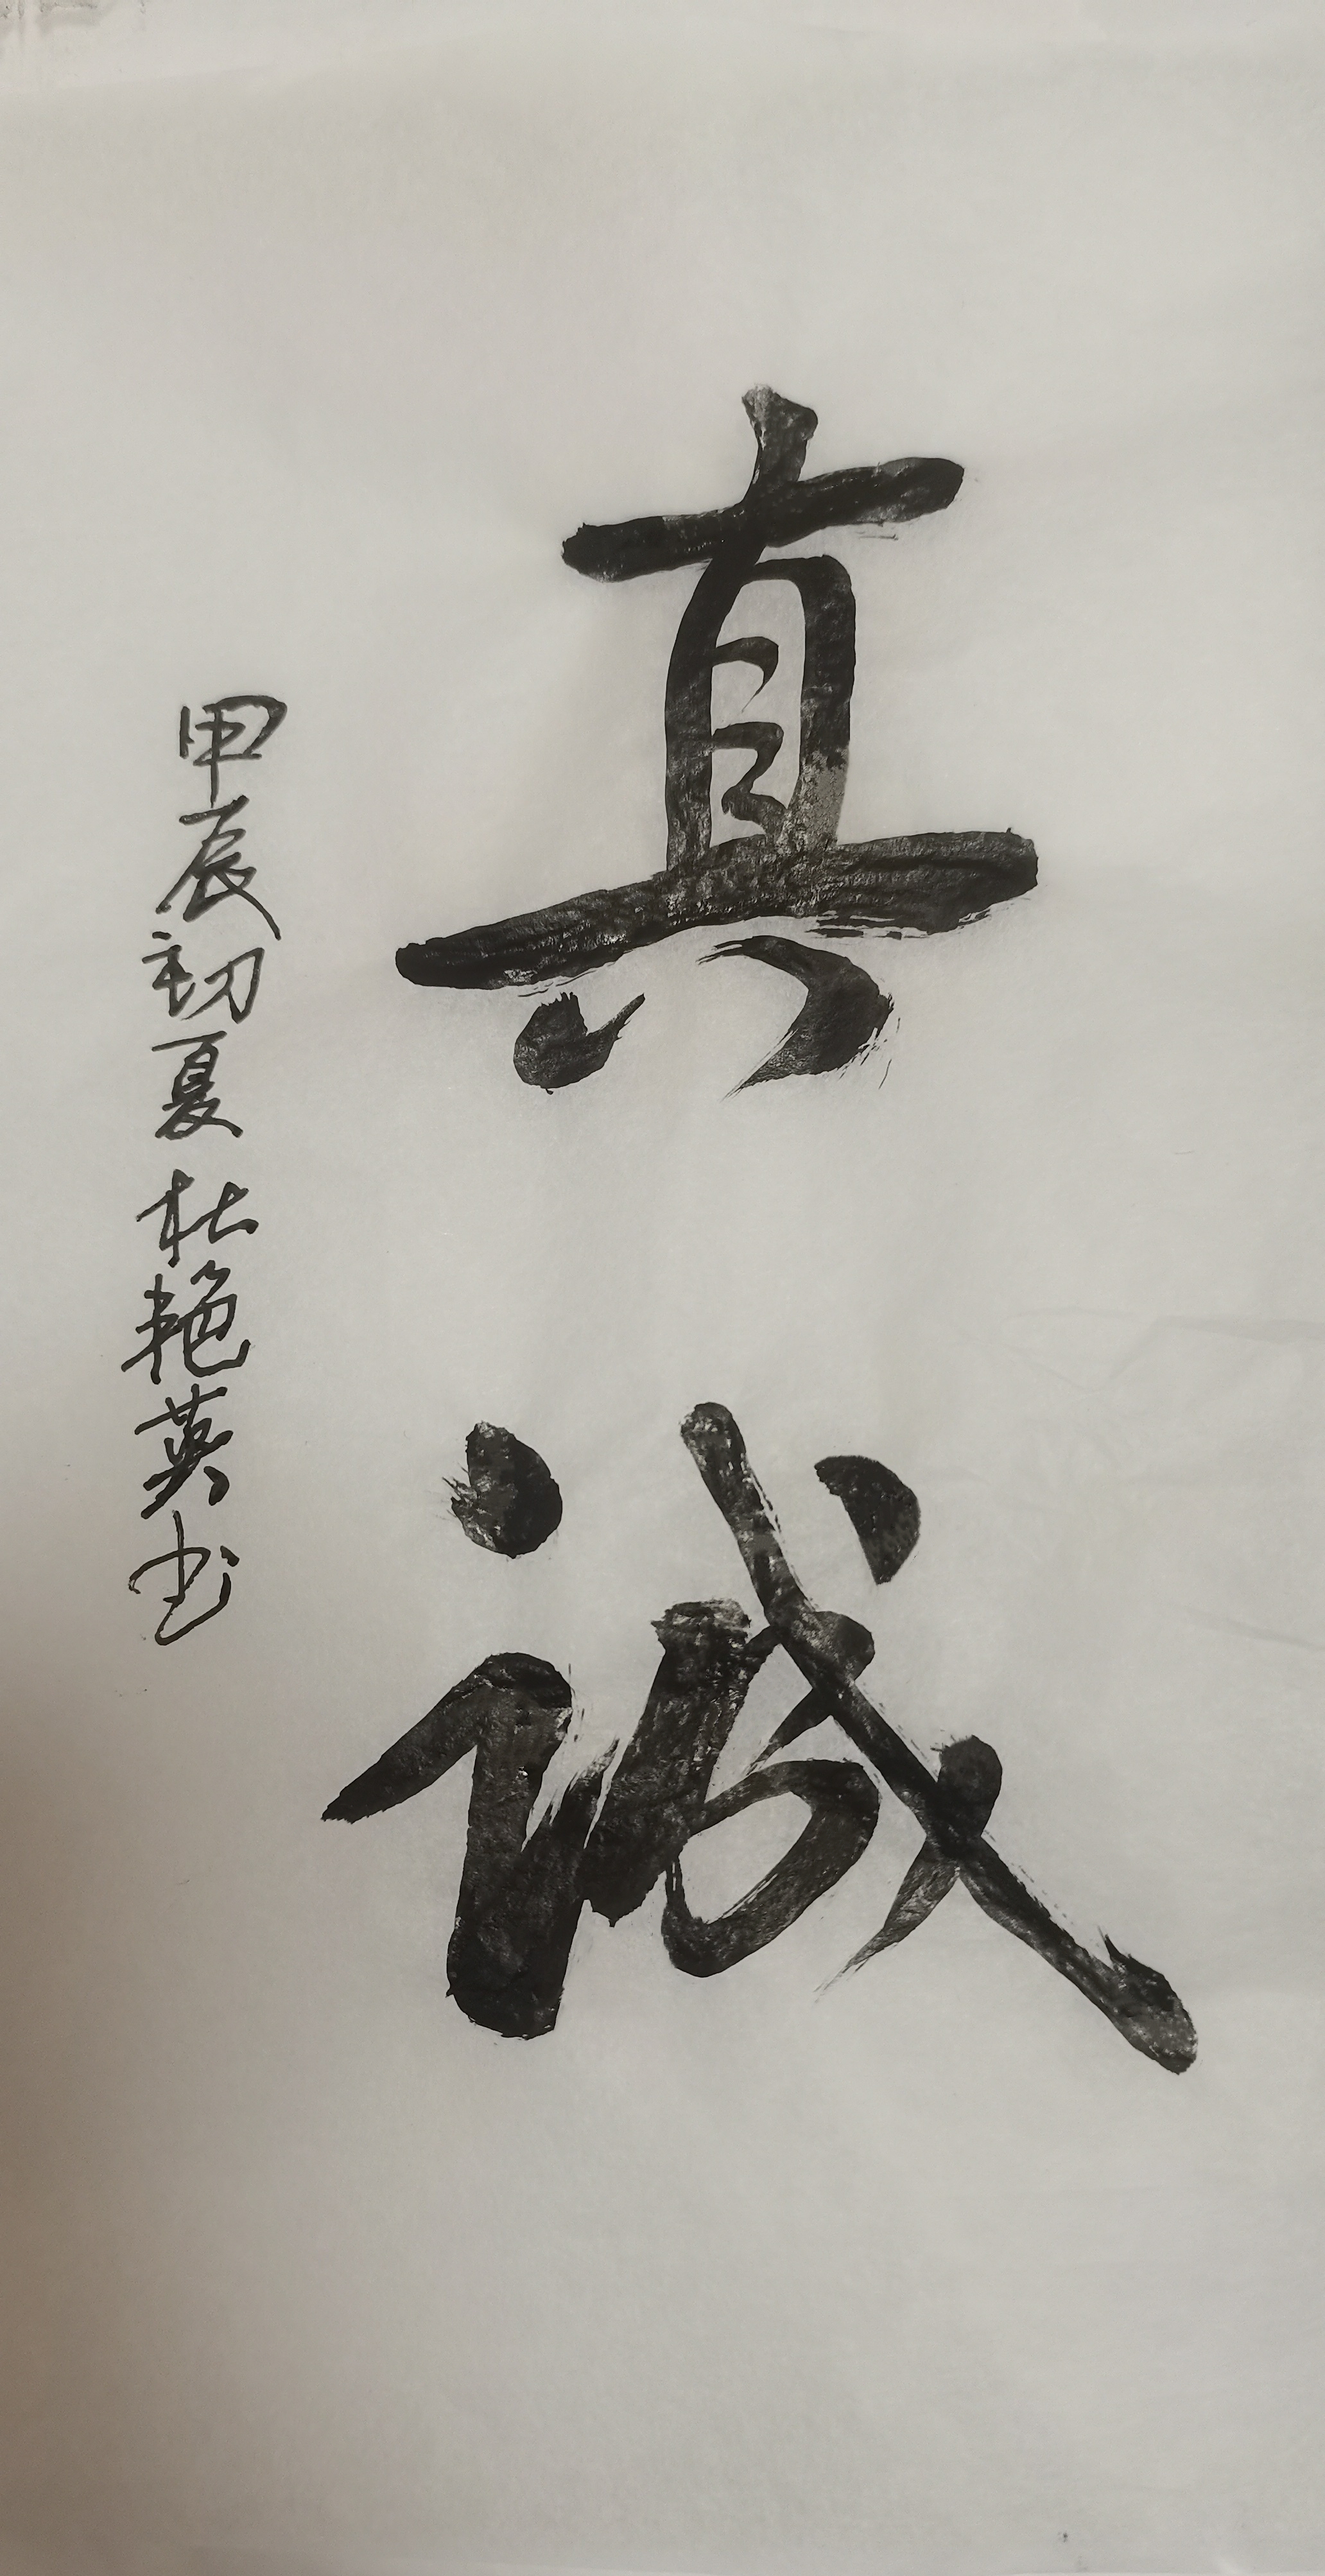 真诚
甲辰初夏 杜艳英书